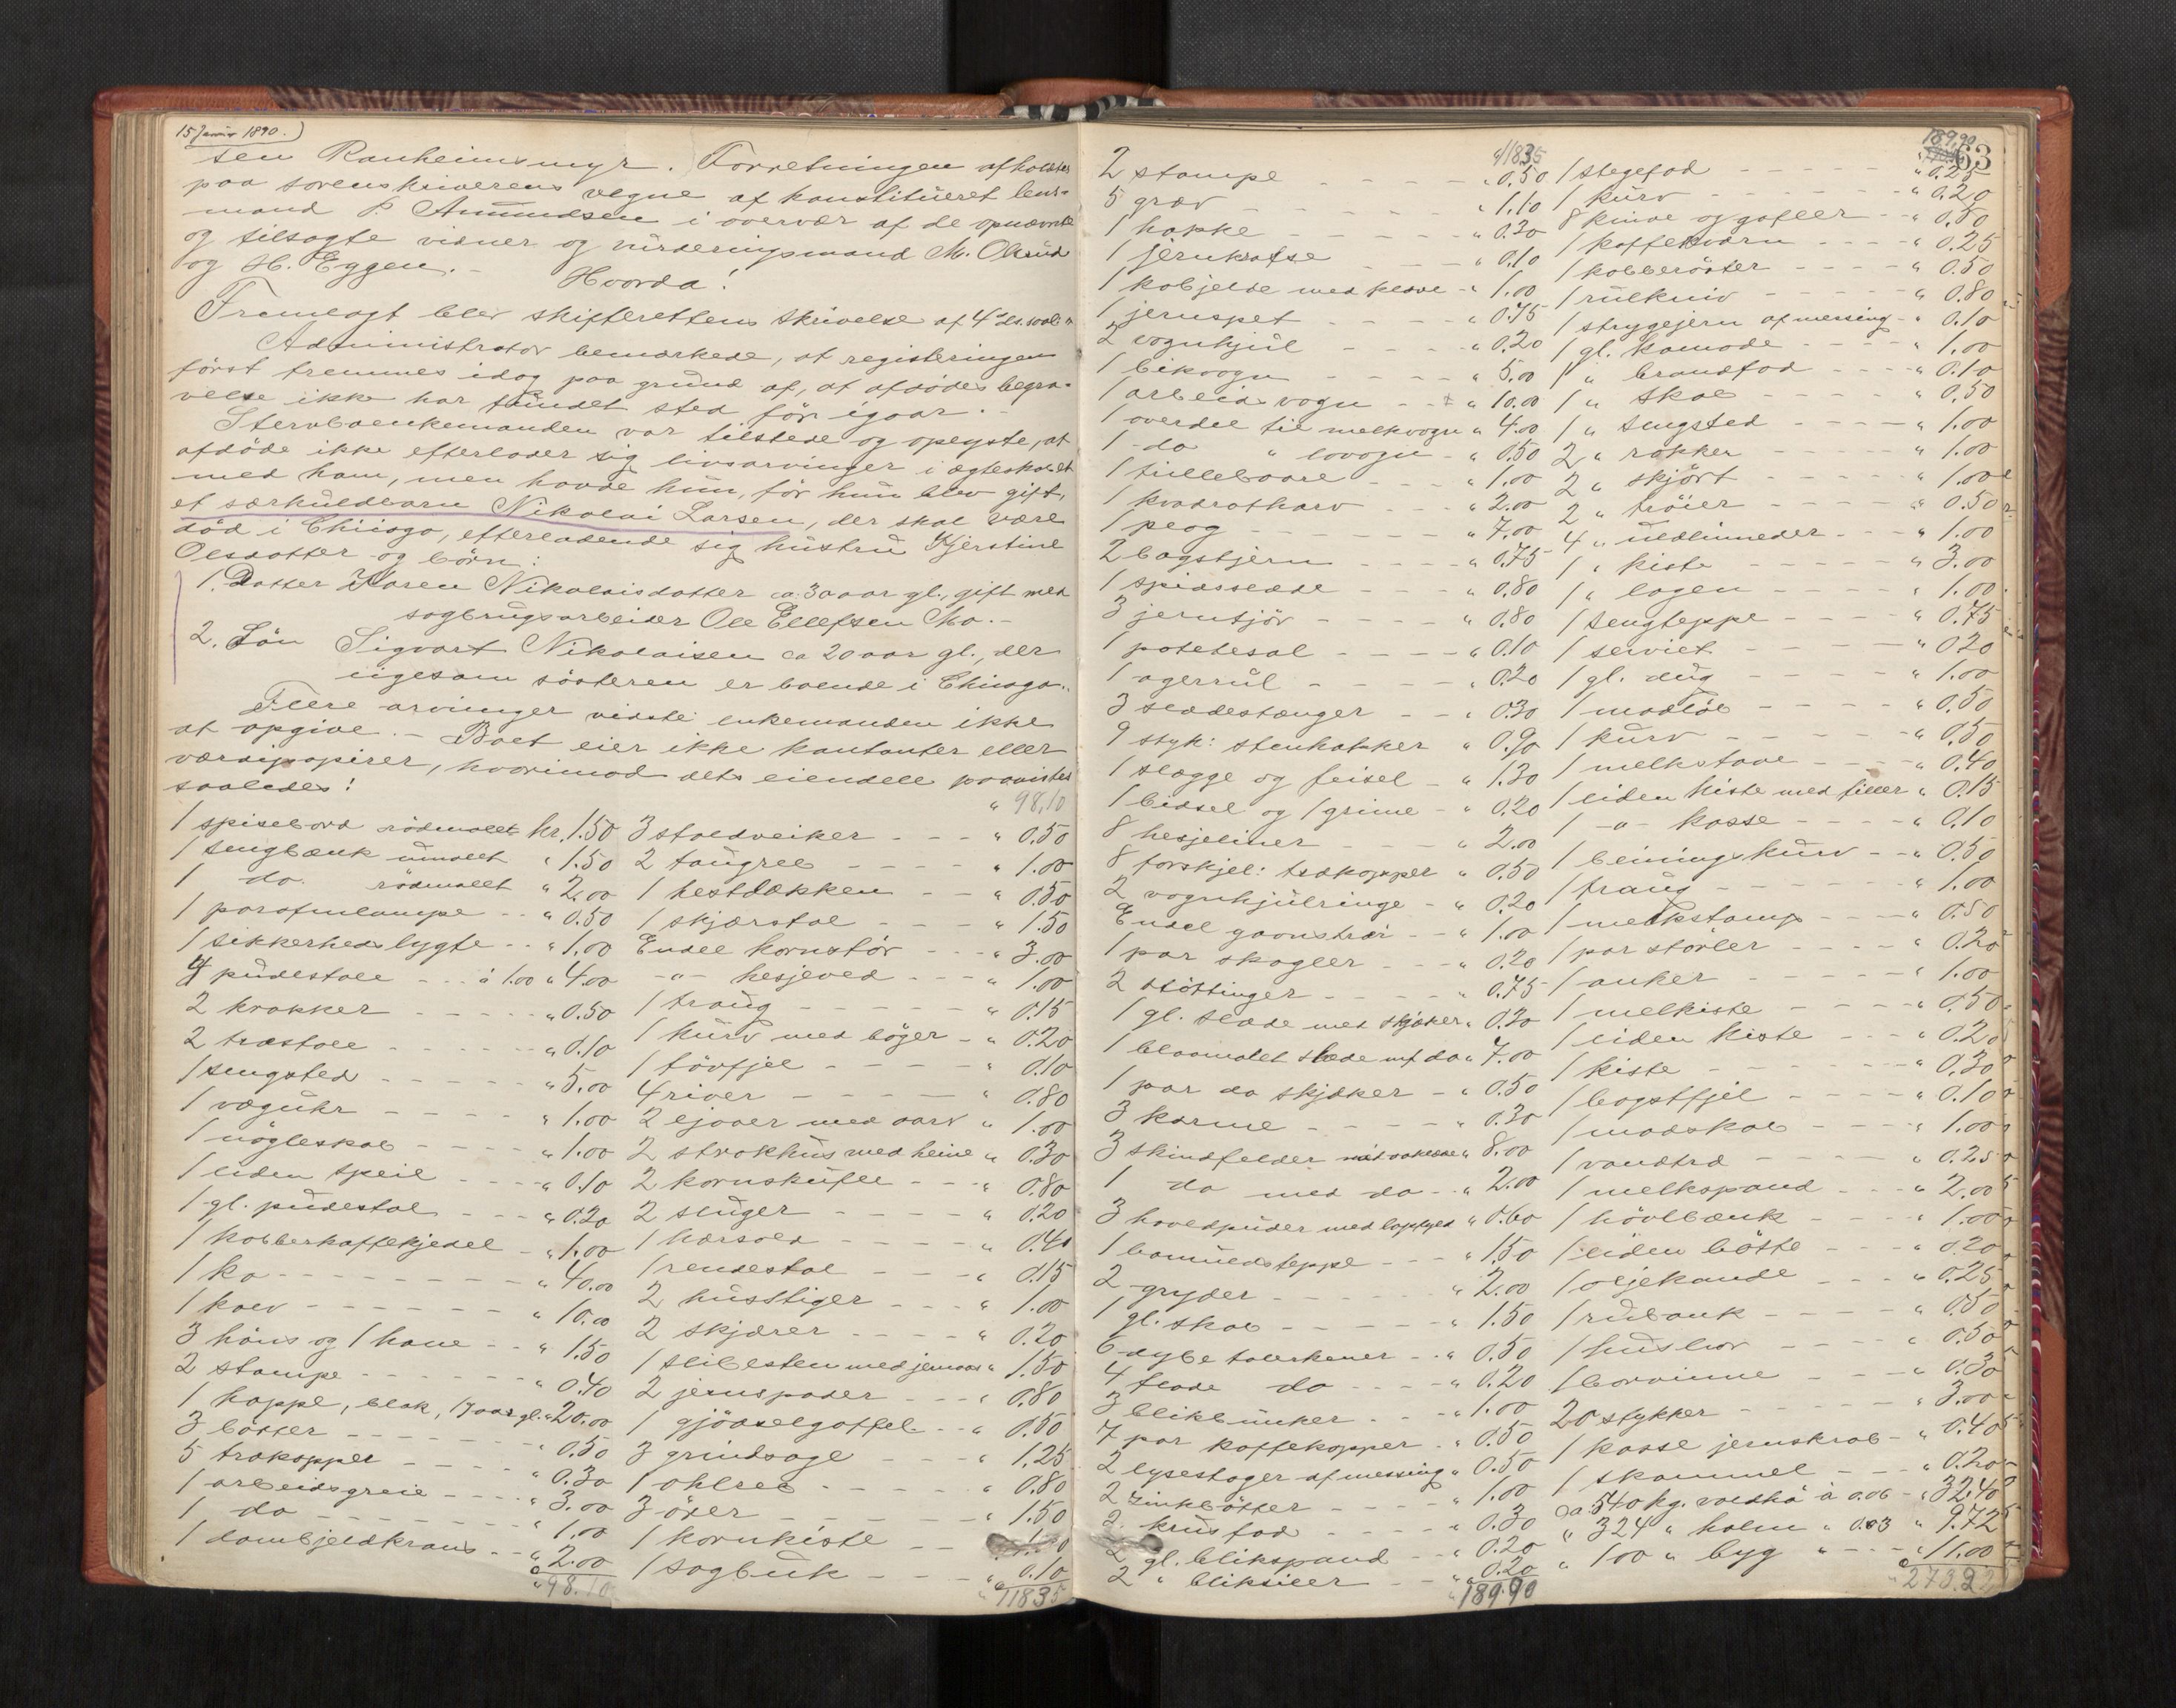 15 Januar 1890.)
sen Ranheimsmyr. Forretningen afholdtes
paa sorenskriverens vegne af konstitueret lens-
mand P. Amundsen i overvær af de opnævnte
og tilsagte vidner og vurderingsmænd M. Olsrud
og H. Eggen. - Hvorda!
Fremlagt blev skifterettens skrivelse af 4de ds.
Administrator bemærkede, at registeringen
først fremmes idag paa grund af, at afdødes begra-
velse ikke har fundet sted før igaar. -
Stervboenkemanden var tilstede og oplyste, at
afdøde ikke efterlader sig livsarvinger i ægteskabet
med ham, men havde hun, før hun blev gift,
et særkuldbarn Nikolai Larsen, der skal være
død i Chicago, efterladende sig hustru Kjerstine
Olsdatter og børn:
1. Datter Karen Nikolaisdatter ca. 30 aar gl., gift med
sagbrugsarbeider Ole Ellefsen Mo. -
2. Søn Sigvart Nikolaisen ca 20 aar gl., der
ligesom søsteren er boende i Chicago.
Flere arvinger vidste enkemanden ikke
at opgive. - Boet eier ikke kontanter eller
værdipapirer, hvorimod dets eiendele paavistes
saaledes:
1 spisebord rødmalet kr. 1.50
1 sengbænk umalet " 1.50
1 do. rødmalet " 2.00
1 parafinlampe " 0.50
1 sikkerhedslygte " 1.00
4 pudestole à 1.00 " 4.00
2 krakker " 0.50
2 træstole " 0.10
1 sengsted " 5.00
1 væguhr " 1.00
1 nøgleskab " 1.00
1 liden speil " 0.10
1 gl. pudestol " 0.20
1 kobberkaffekjedel " 1.00
1 ko " 40.00
1 kalv " 10.00
3 høns og 1 hane " 1.50
2 stampe " 0.40
1 hoppe, blak, 17 aar gl. " 20.00
3 bøtter " 0.50
5 trækopper " 0.30
1 arbeidsgreie " 3.00
1 do " 1.00
1 dombjeldkrans " 2.00
" 98.10
" 98,10
3 staldveiker " 0.50
2 taugreb " 1.00
1 hestdækken " 0.50
1 skjærstol " 1.50
Endel kornstør " 3.00
-"- hesjeved " 1.00
1 traug " 0.15
1 kurv med bøger " 0.20
1 tøvfjel " 0.10
4 river " 0.80
2 ljaaer med oarv " 1.00
2 strokhus med heine " 0.30
2 kornskufle " 0.80
2 sluger " 0.20
1 hærsold " 0.40
1 rendestol " 0.15
2 husstiger " 1.00
2 skjærer " 0.20
1 slibesten med jernaas " 1.50
2 jernspader " 0.80
1 gjødselgaffel " 0.50
3 grindsage " 1.25
1 ohlreb " 0.80
3 øxer " 1.50
1 kornkiste
1 sagbuk " 0.10
" 118.35
118.35
2 stampe " 0.50
5 græv " 1.10
1 hakke " 0.20
1 jernkrafse " 0.10
1 kobjelde med klave " 1.00
1 jernspet " 0.75
2 vognhjul " 0.20
1 likvogn " 5.00
1 arbeidsvogn " 10.00
1 overdel til melkvogn " 4.00
1 do " lovogn " 0.50
1 trillebaare " 1.00
1 kvadratharv " 2.00
1 plog " 7.00
2 bogstjern " 0.75
1 spidsslæde " 0.80
3 jerntjør " 0.80
1 potetesal " 0.10
1 agerrul " 0.20
3 slædestænger " 0.30
9 styk: stenhakker " 0.90
1 slægge og feisel " 1.30
1 bidsel og 1 grime " 0.20
8 hesjeliner " 2.00
8 forskjel: trækopper " 0.50
2 vognhjulringe " 0.20
Endel gavnstrær " 1.00
1 par skagler " 0.20
2 støttinger " 0.75
1 gl. slæde med skjæker " 0.30
1 blaamalet slæde m/ do " 7.00
1 par do skjæker " 0.50
3 karme " 0.30
3 skindfelder " 8.00
1 do med do " 2.00
3 hovedpuder " 0.60
1 bomuldsteppe " 1.50
2 gryder " 2.00
1 gl. skab " 1.50
6 dybe tallerkener " 0.50
4 flade do " 0.20
3 blikbunker " 1.00
7 par kaffekopper " 0.50
2 lysestager af messing " 0.50
2 zinkbøtter " 1.00
2 krusfad " 0.30
2 gl. blikspand " 0.20
2 " bliksiler " 0.20
" 189.90
189,90
63
1 stegefad " 0.25
1 kurv " 0.20
8 knive og gafler " 0.50
1 kaffekværn " 0.25
1 kobberøster " 0.50
1 rulkniv " 0.80
1 strygejern af messing " 0.10
1 gl. komode " 1.00
1 " brandfad " 0.10
1 " skab " 0.50
1 " sengsted " 1.00
2 " rokker " 1.00
2 " skjørt " 1.00
2 " trøier " 0.50
4 " uldlinneder " 1.00
1 " kiste " 3.00
1 " lagen " 1.00
1 sengteppe " 0.75
1 serviet " 0.20
1 gl. dug " 1.00
1 madløb " 0.50
1 kurv " 0.50
1 melkstave " 0.40
1 liden kiste med filler " 0.15
1 -"- kasse " 0.10
1 beiningskurv " 0.50
1 traug " 1.00
1 melkstamp " 0.50
1 par støvler " 0.20
1 anker " 1.00
1 melkiste " 0.50
1 liden kiste " 0.20
1 kiste " 0.30
1 bagstfjel " 0.10
1 madskab " 1.00
1 vandtræ " 0.25
1 melkspand " 2.00
1 høvlbænk " 1.00
1 liden bøtte " 0.20
1 oljekande " 0.25
1 rubank " 0.50
1 huslov " 0.50
1 borvinne " 0.30
20 stykker " 3.00
1 kasse jernskrab " 0.40
1 skammel " 0.20
Ca. 540 kg. voldhø à 0.06 " 32.40
" 324 " halm " 0.03 " 9.72
" 100 " byg " " 11.00
" 273.92